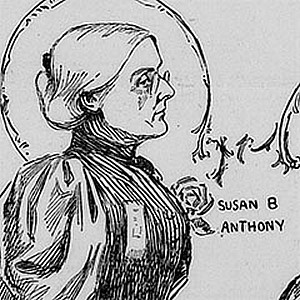 SUSAN B
ANTHONY